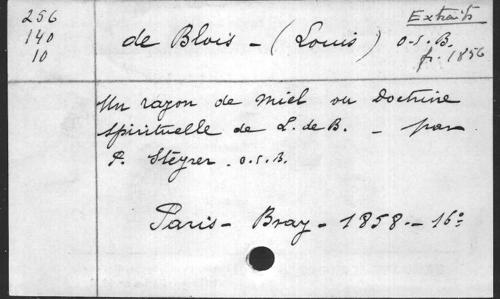 256
140
10
Extraits
de Blois - (Louis) o.s.B.
fr. 1856
Un rayon de miel ou Doctrine
spirituelle de L. de B. - par
P. Steyrer. o.s.B.
Paris - Bray - 1858 - 16°